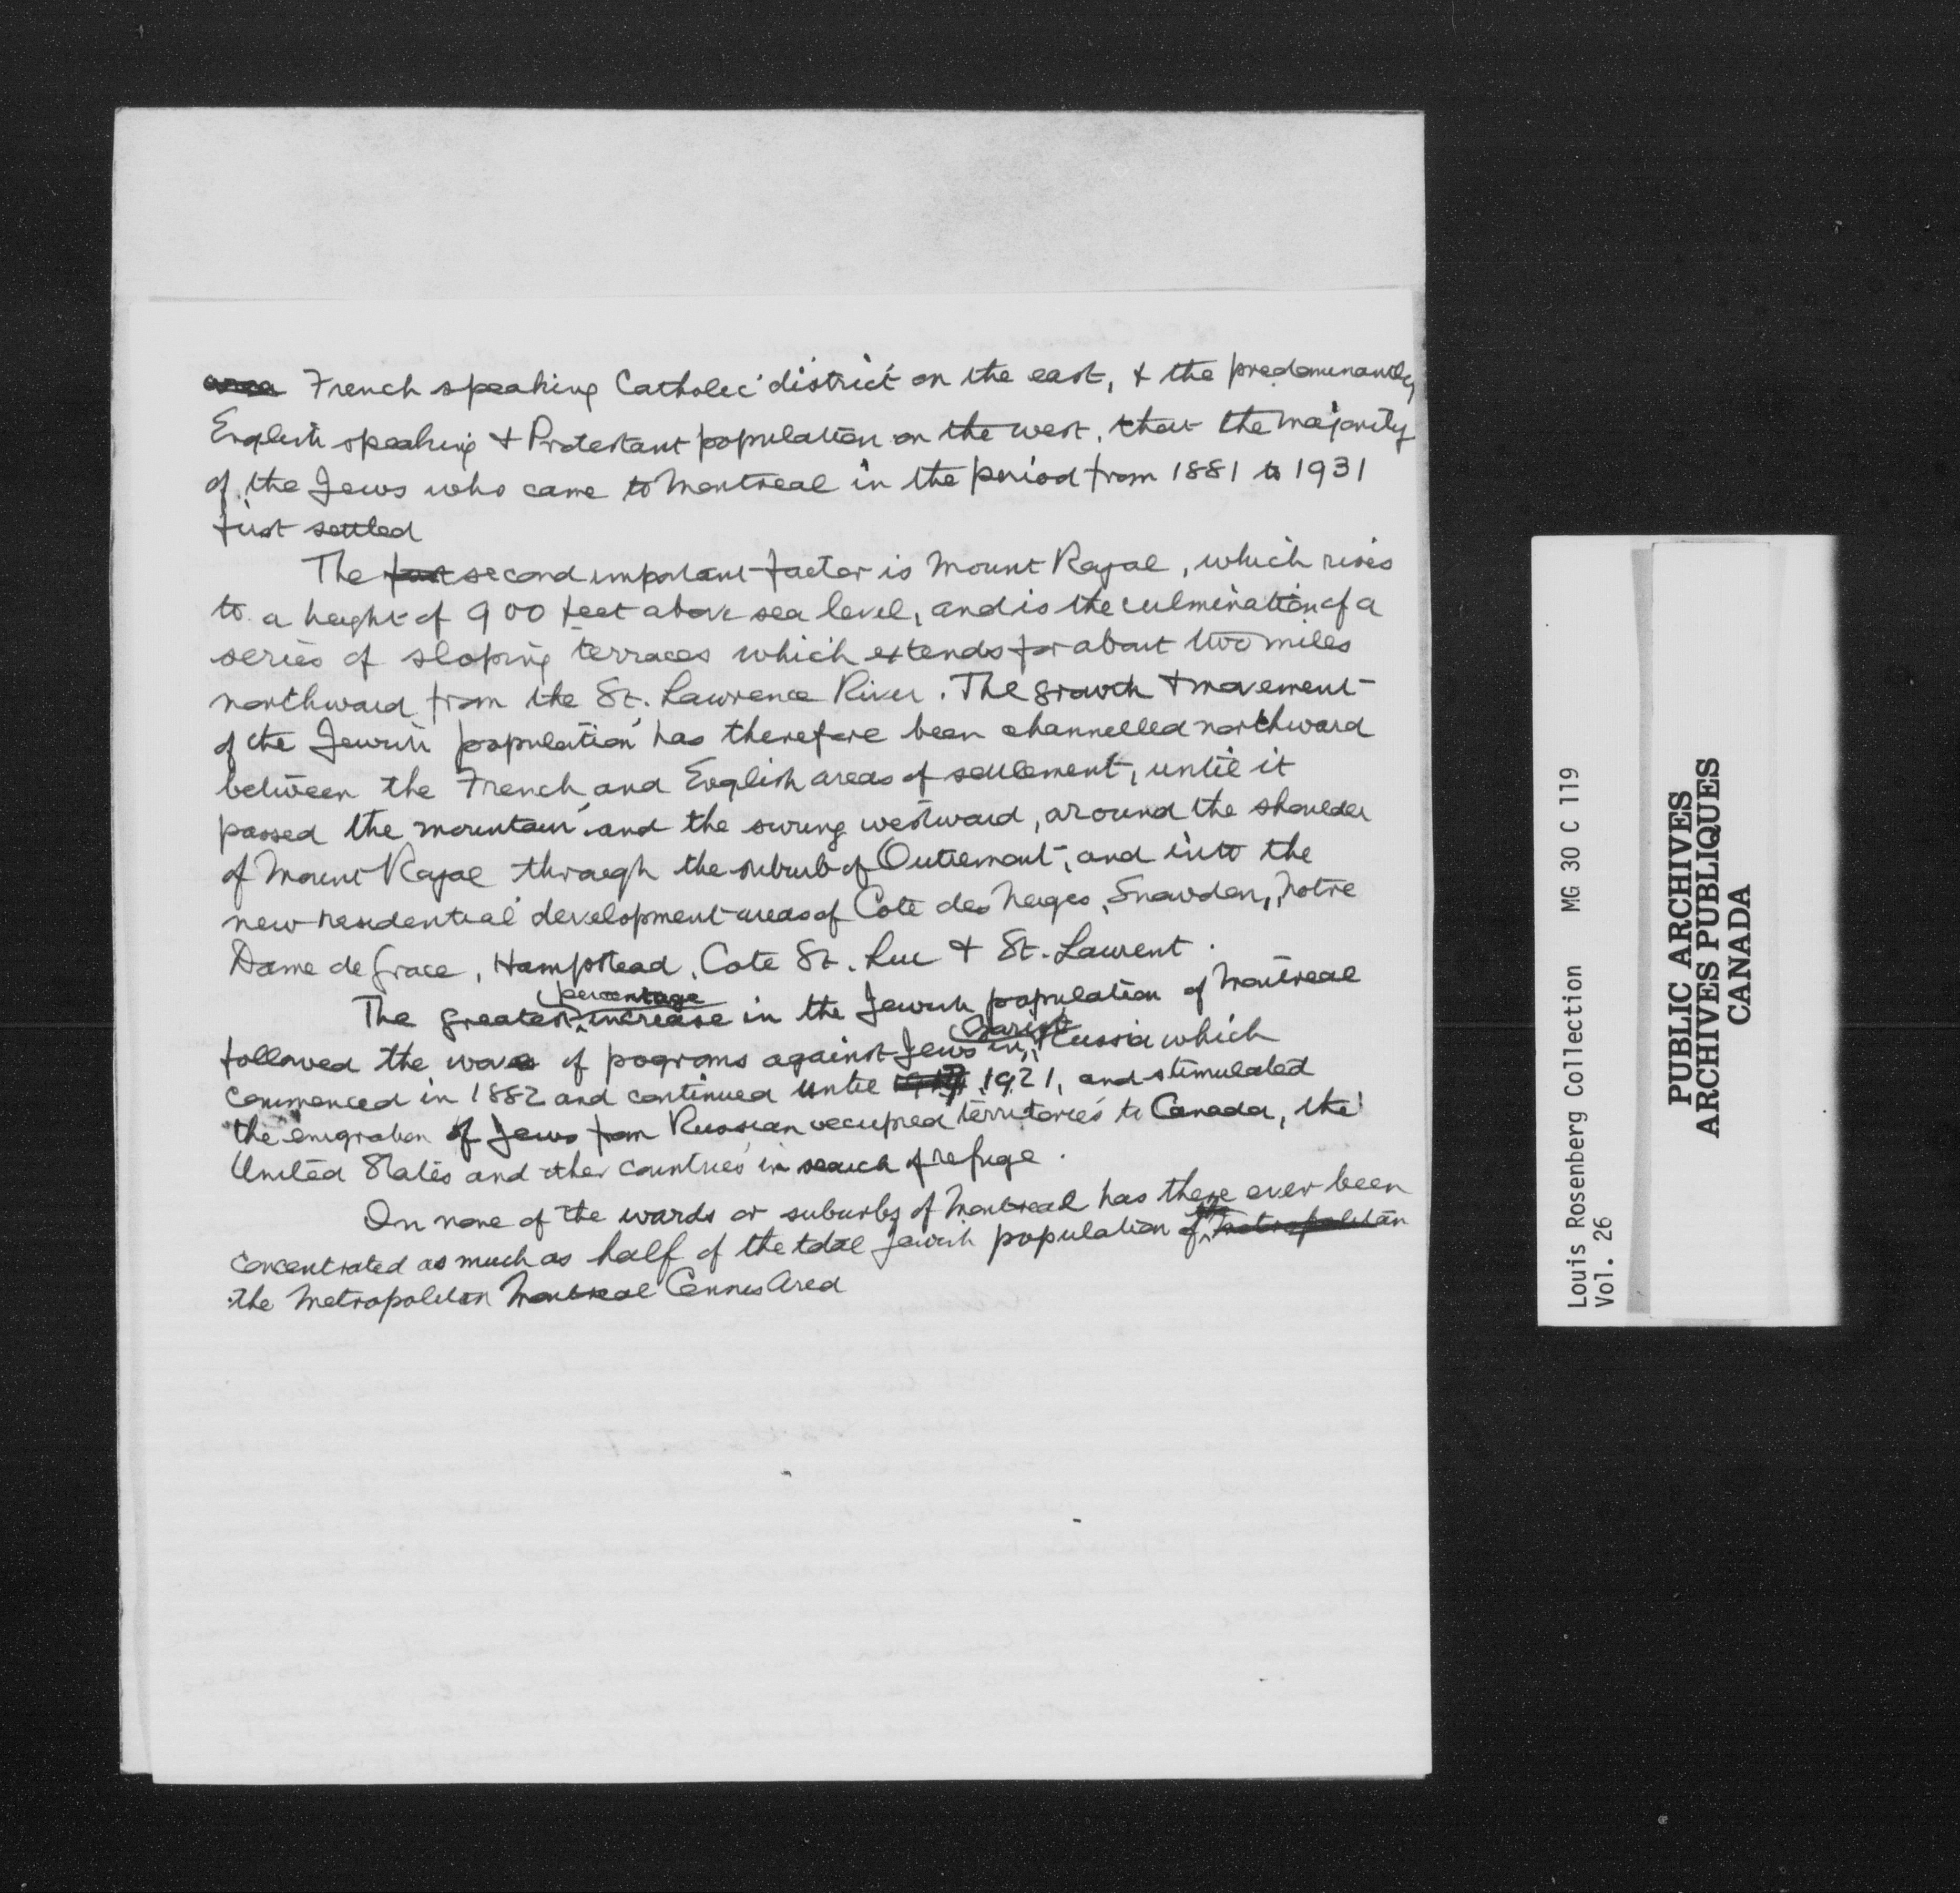 area French speaking Catholic district on the east, & the predominantly
English speaking & Protestant population on the west, that the majority
of the Jews who came to Montreal in the period from 1881 to 1931
first settled
The first second important factor is Mount Royal, which rises
to a height of 900 feet above sea level, and is the culmination of a
series of sloping terraces which extends for about two miles
northward from the St. Lawrence River. The growth & movement
of the Jewish population has therefore been channelled northward
between the French and English areas of settlement, until it
passed the mountain and the swung westward, around the shoulder
of Mount Royal through the suburb of Outremont, and into the
new residential development areas of Cote des Neiges, Snowdon, Notre
Dame de Grace, Hampstead, Cote St. Luc & St. Laurent.
The greatest percentage increase in the Jewish population of Montreal
followed the waves of pogroms against Jews in Czarist Russia which
commenced in 1882 and continued until 1921, and stimulated
the emigration of Jews from Russian occupied territories to Canada, the
United States and other countries in search of refuge.
In none of the wards or suburbs of Montreal has there ever been
concentrated as much as half of the total Jewish population of the metropolitan
the Metropolitan Montreal Census Area
Louis Rosenberg Collection MG 30 C 119
Vol. 26
PUBLIC ARCHIVES
ARCHIVES PUBLIQUES
CANADA